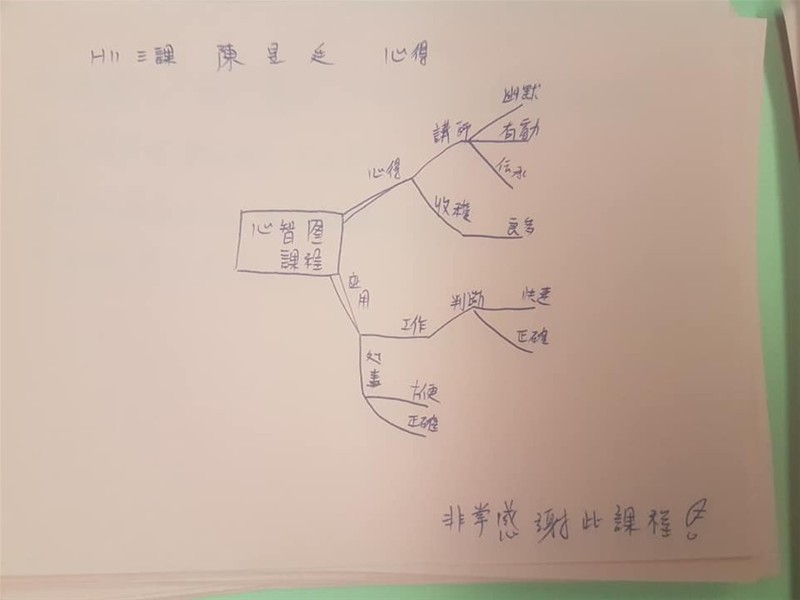 H11 三課 陳昱廷 心得
幽默
講師
有動
伝承
心得
收穫
良多
心智图
課程
应用
工作
判断
快速
正確
处事
方便
正確
非常感謝此課程!